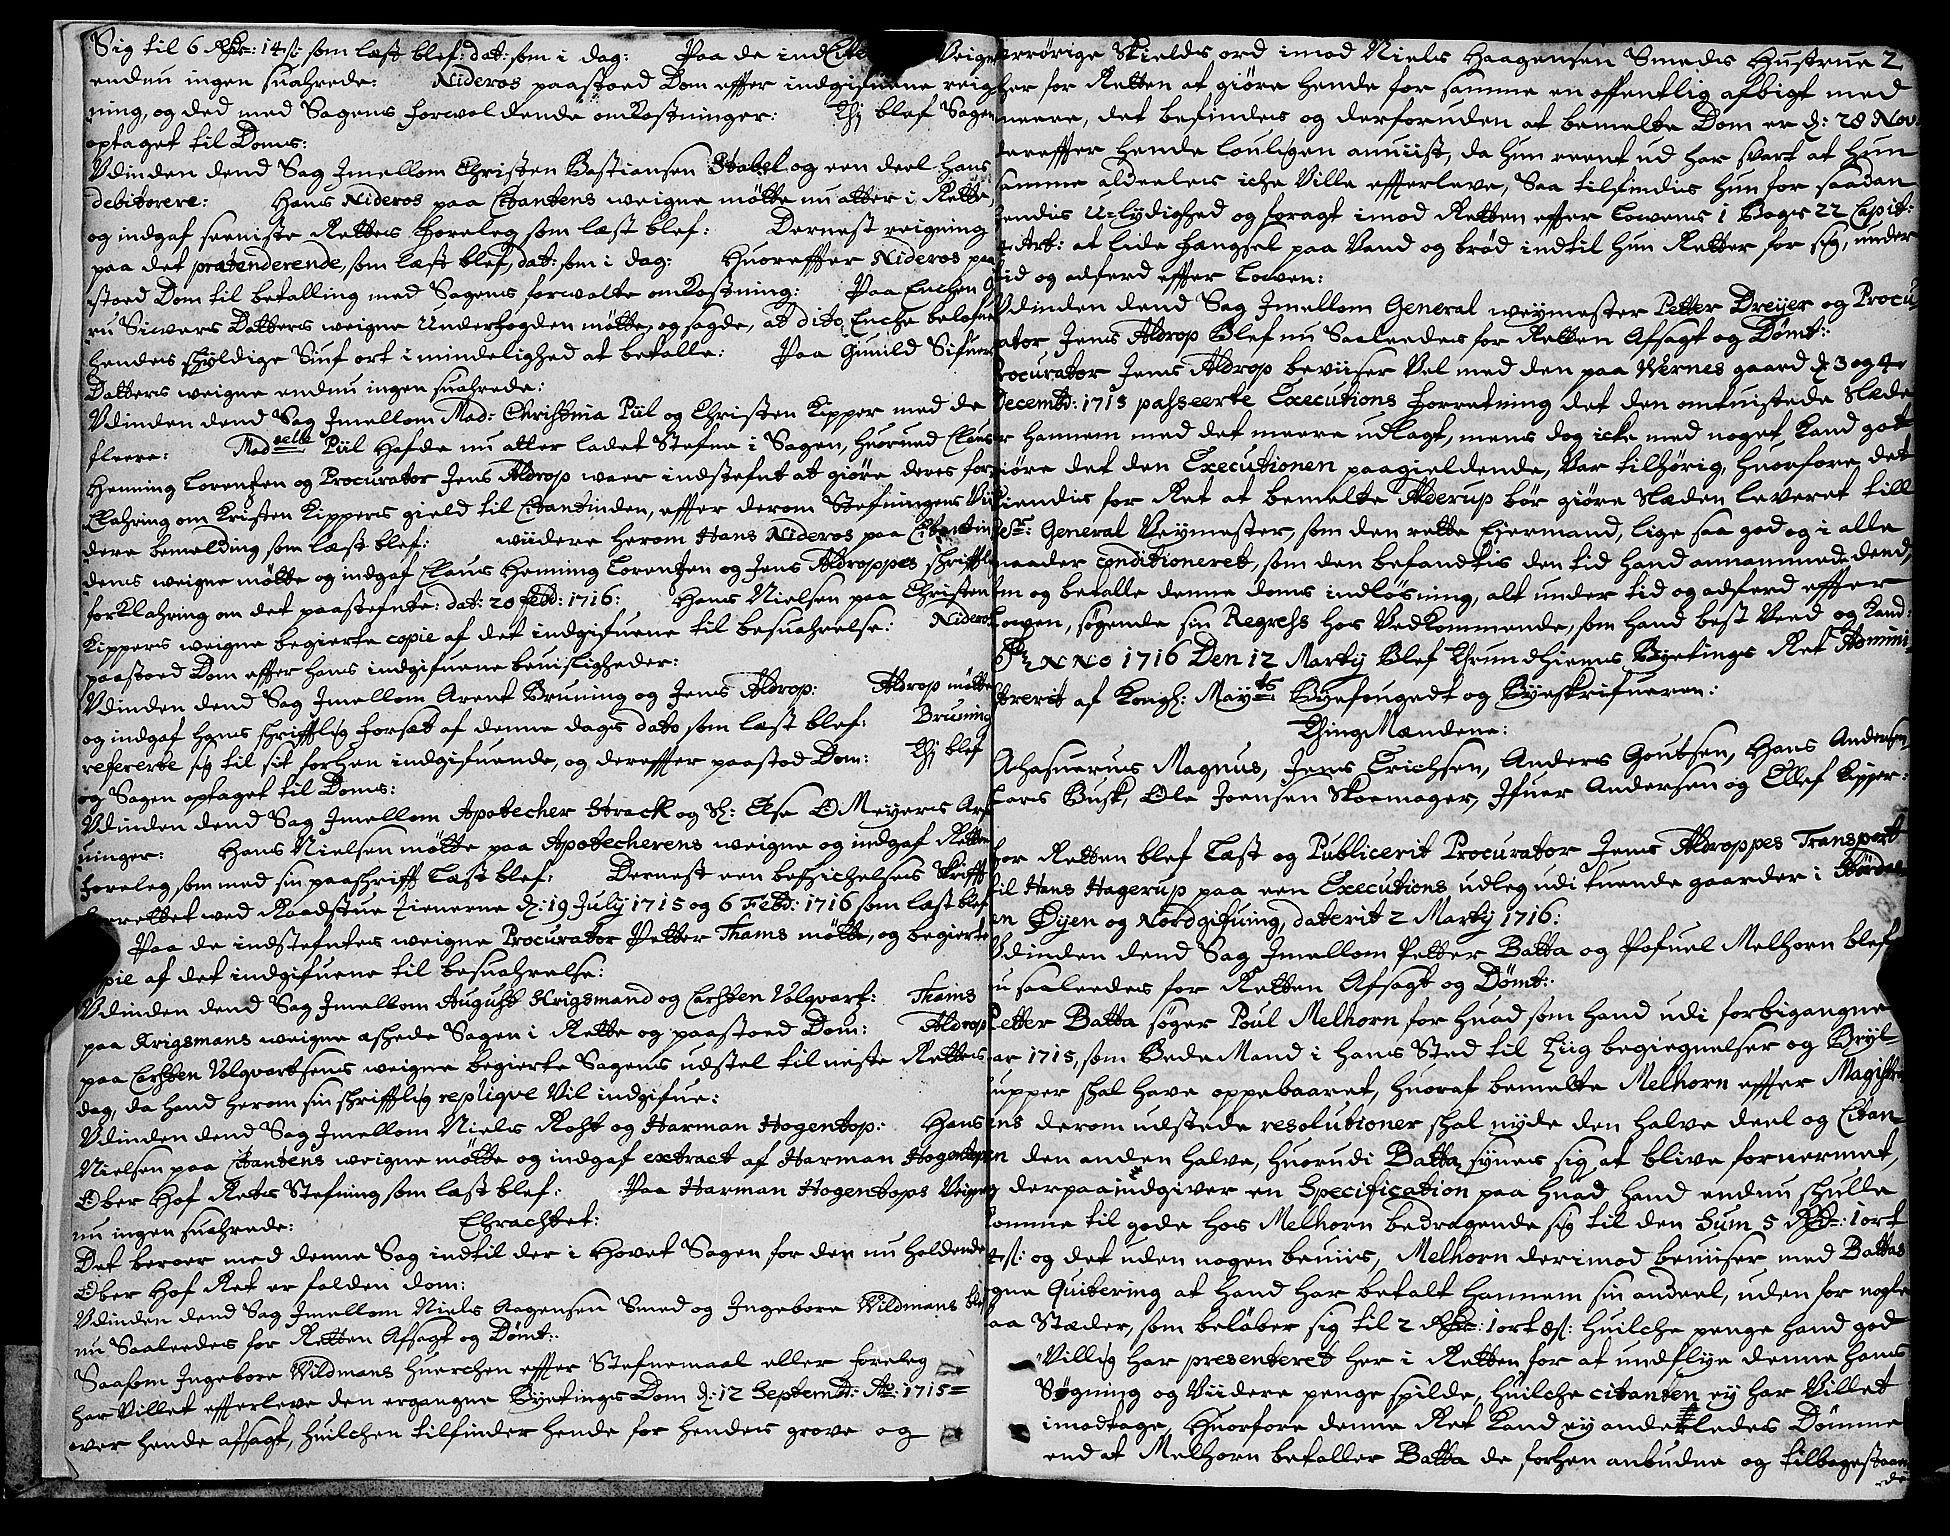 Sig til 6 Rdr: 14 s: som læst blef: dat: som i dag: Paa de ind Veigne
endnu ingen suahrede: Nideros paastoed Dom effter indgifuene reig
ning, og ded med Sagens forvoldende omkostninger: Thj blef Sagen
optaget til Doms:
Udinden dend Sag Imellom Christen Bastiansen Stabel og een deel hans
debitorere: Hans Nideros paa Citantens weigne mötte nu atter i Rette
og indgaf seeniste Rettes foreleg som læst blef: Dernest reigning
paa det prætenderende, som læst blef, dat: som i dag: Huoreffter Nideros paa
stoed Dom til betalling med Sagens forvolte omkostning: Paa Enchen
ru Siwers Datters weigne Underfogden mötte, og sagde, at dito Enche belofuer
hendes schyldige Siuf ort i mindelighed at betalle: Paa Gunild Sifuers
Datters weigne endnu ingen suahrede:
Udinden dend Sag Imellom Mad: Christinia Piil og Christen Kipper med de
fleere: Madselle Piil hafde nu atter ladet Stefne i Sagen, huorved Claus
Henning Lorentzen og Procurator Jens Aldrop waar indstefnt at giöre deres for
Klahring om Kristen Kippers gield til Citantinden, effter derom Stefningens Vii
dere bemelding som læst blef: wiidere herom Hans Nideros paa Citantin
dens weigne mötte og indgaf Claus Henning Lorentzen og Jens Aldroppes schrifftl:
forklahring om det paastefnte: dat: 20 febr: 1716: Hans Nielsen paa Christen
Kippers weigne begierte copie af det indgifuene til besuahrelse: Nideros
paastoed Dom effter hans indgifuene beuisligheder:
Udinden dend Sag Imellom Arent Bruning og Jens Aldrop: Aldrop mötte
og indgaf hans schrifftlig forsæt af denne dags dato som læst blef: Bruning
refererte sig til sit forhen indgifuende, og dereffter paastod Dom: Thj blef
og Sagen optaget til Doms:
Udinden dend Sag Imellom Apotecher Strack og Sl: Else O Meyers Arf
uinger: Hans Nielsen mötte paa Apotecherens weigne og indgaf Rettens
foreleg som med sin paaschrifft læst blef: Dernest een besichelses Skrifft
forrettet ved Raadstue Tienerne d: 19 July 1715 og 6 Febr: 1716 som læst blef
Paa de indstefntes weigne Procurator Petter Thams mötte, og begierte
Copie af det indgifuene til besuahrelse:
Udinden dend Sag Imellom August Krigsmand og Carsten Volqvart: Thams
paa Krigsmans weigne æshede Sagen i Rette og paastoed Dom: Aldrop
paa Carsten Volqvartsens weigne begierte Sagens udstel til neste Rettes
dag, da hand herom sin schrifftlig replique Vil indgifue:
Udinden dend Sag Imellom Niels Rost og Harman Hogentop: Hans
Nielsen paa Citantens weigne mötte og indgaf extract af Harman Hogentopen
Ober Hof Rets Stefning som læst blef: Paa Harman Hogentops Veigne
nu ingen suahrede: Ebrachtet:
Det beroer med denne Sag indtil der i Hovet Sagen for den nu holdende
Ober Hof Ret er falden dom:
Udinden dend Sag Imellom Niels Aagensen Smed og Ingeborr Wildmans blef
nu Saaleedes for Retten Afsagt og Dömt:
Saasom Ingeborr Wildmans huerchen effter Stefnemaal eller foreleg
har Villet effterleve den ergangne Byetings Dom d: 12 Septembr: Ao: 1715
over hende afsagt, huilchen tilfinder hende for hendes grove og
errörige Skields ord imod Niels Haagensen Smeds Hustrue 2
her for Retten at giöre hende for samme en offentlig afbigt med
meere, det befindes og derforuden at bemelte Dom er d: 28 Nov:
dereffter hende loulygen anviist, da hun reent ud har svart at hun
samme aldeeles iche Ville effterleve, Saa tilfindis hun for saadan
hendis U=lydighed og foragt imod Retten effter Lowens 1 Bogs 22 Capit:
4 Art: at lide fængsel paa Vand og bröd indtil hun Retter for sig, under
tid og adferd effter Lowen:
Udinden dend Sag Imellom General weymester Petter Dreyer og Procu
rator Jens Aldrop Blef nu Saaleedes for Retten Afsagt og Dömt:
Procurator Jens Aldrop beviiser Vel med den paa Wernes gaard d: 3 og 4
Decembr: 1715 passeerte Executions Forretning det den omtuistede Slæde
er hannem med det meere udlagt, mens dog icke med noget kand got
giöre det den Executionen paagieldende, Var tilhörig, huorfore det
kiendis for Ret at bemelte Alderup bör giöre Slæden leveret till
Sr: General Veymester, som den rette Eyermand, lige saa god og i alle
maader conditioneret, som den befandtis den tid hand annammede dend,
om og betalle denne doms indlösning, alt under tid og adferd effter
Lowen, söyende sin Regress hos Vedkommende, som hand best Veed og kand:
ANNO 1716 Den 12 Marty Blef Thrundhiems Byetings Ret Admini
strerit af Kongl: Mayts Byefougedt og Byeskrifueren:
Thing Mændene:
Ahasuerus Magnus, Jens Erichsen, Anders Goutsen, Hans Andersen
Lars Busk, Ole Joensen Skoemager, Ifuer Andersen og Ellef Kipper:
For Retten blef Læst og Publicerit Procurator Jens Aldroppes Transport
til Hans Hagerup paa een Executions udleg udi tuende gaarder i Stördal
en Öyen og Nordgifuing, daterit 2 Marty 1716:
Udinden dend Sag Imellom Petter Batta og Pofuel Melhorn blef
nu saaleedes for Retten Afsagt og Dömt:
Petter Batta söger Poul Melhorn for huad som hand udi forbigangne
aar 1715, som Bede Mand i hans Sted til Liig begiegnelser og Bryl
lupper shal have oppebaaret, huoraf bemelte Melhorn effter Magistra
tens derom udstede resolutioner shal nyde den halve deel og Citan
ten den anden halve, huorudi Batta synes sig at blive fornermet,
og derpaa indgiver en Specification paa huad hand endnu schulle
komme til gode hos Melhorn bedragende sig til den Sum 5 Rdr: 1 ort
4 s: og det uden nogen beuiis, Melhorn derimod beuiser med Battas
egne Qvitering at hand har betalt hannem sin andeel, uden for nogle
faa Stæder, som belöber sig til 2 Rdr: 1 ort 8 s: Huilche penge hand god
Villig har presenteret her i Retten for at undflye denne hans
Søgning og Viidere penge spilde, huilche citanten ey har Villet
imodtage, Huorfore denne Ret kand ey anderledes Dömme
end at Melhorn betaller Batta de forhen anbudne og tilbagestaaen
de